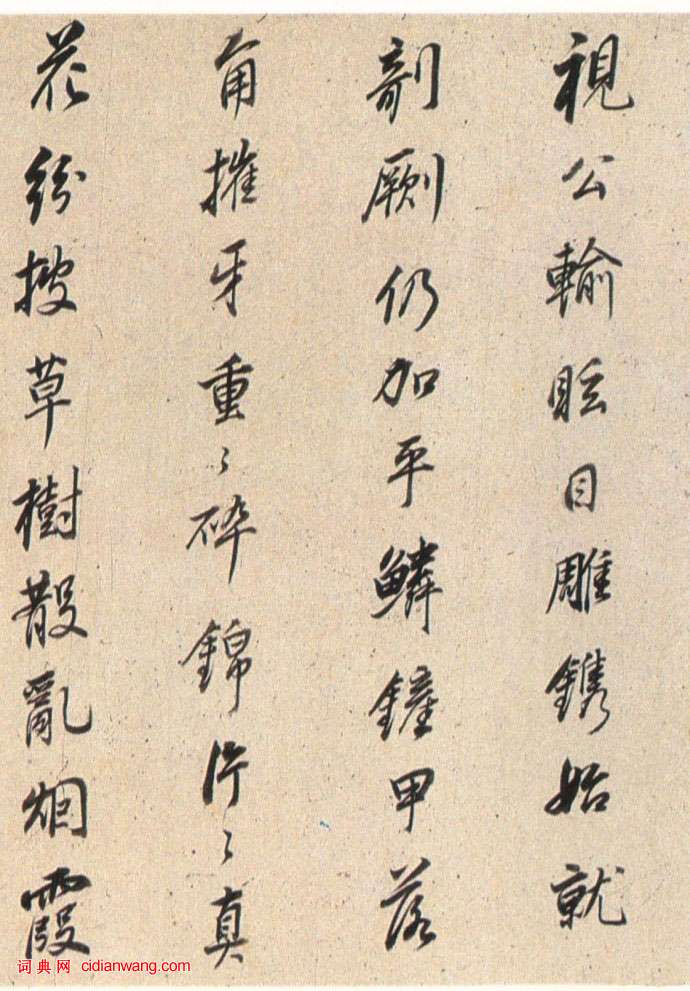 視公輸眩目雕鐫始就
剞劂仍加平鱗鏟甲落
角摧牙重〻碎錦片〻真
花紛披草樹散亂烟霞
词典网 cidianwang.com